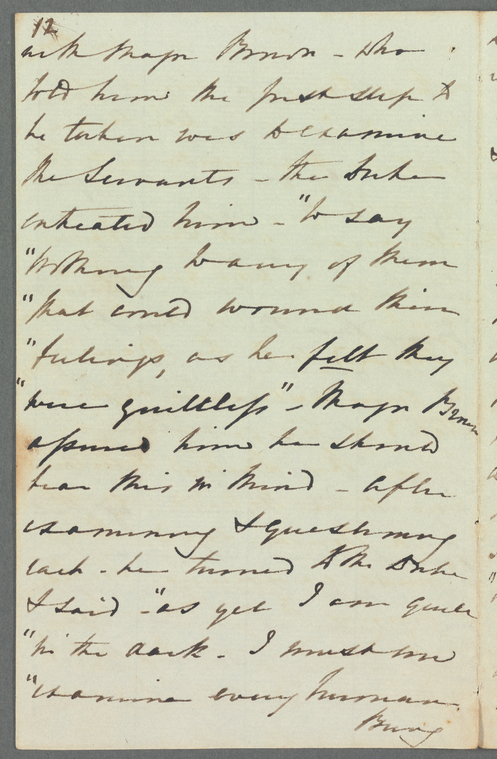 12
with Major Brown - who
told him the first step to
be taken was to examine
the Servants - the Duke
entreated him - "to say
"nothing to any of them
"that could wound their
"feelings, as he felt they
"were guiltless" - Major Brown
assured him he should
bear this in mind - after
examining & questioning
each - he turned to the Duke
& said - "as yet I am quite
"in the dark - I must now
"examine every human
Being